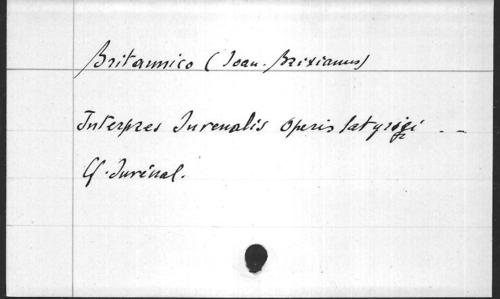 Britannico (Joan. Brixianus)
Interpres Juvenalis Operis satyrici . --
Cf. Juvénal.